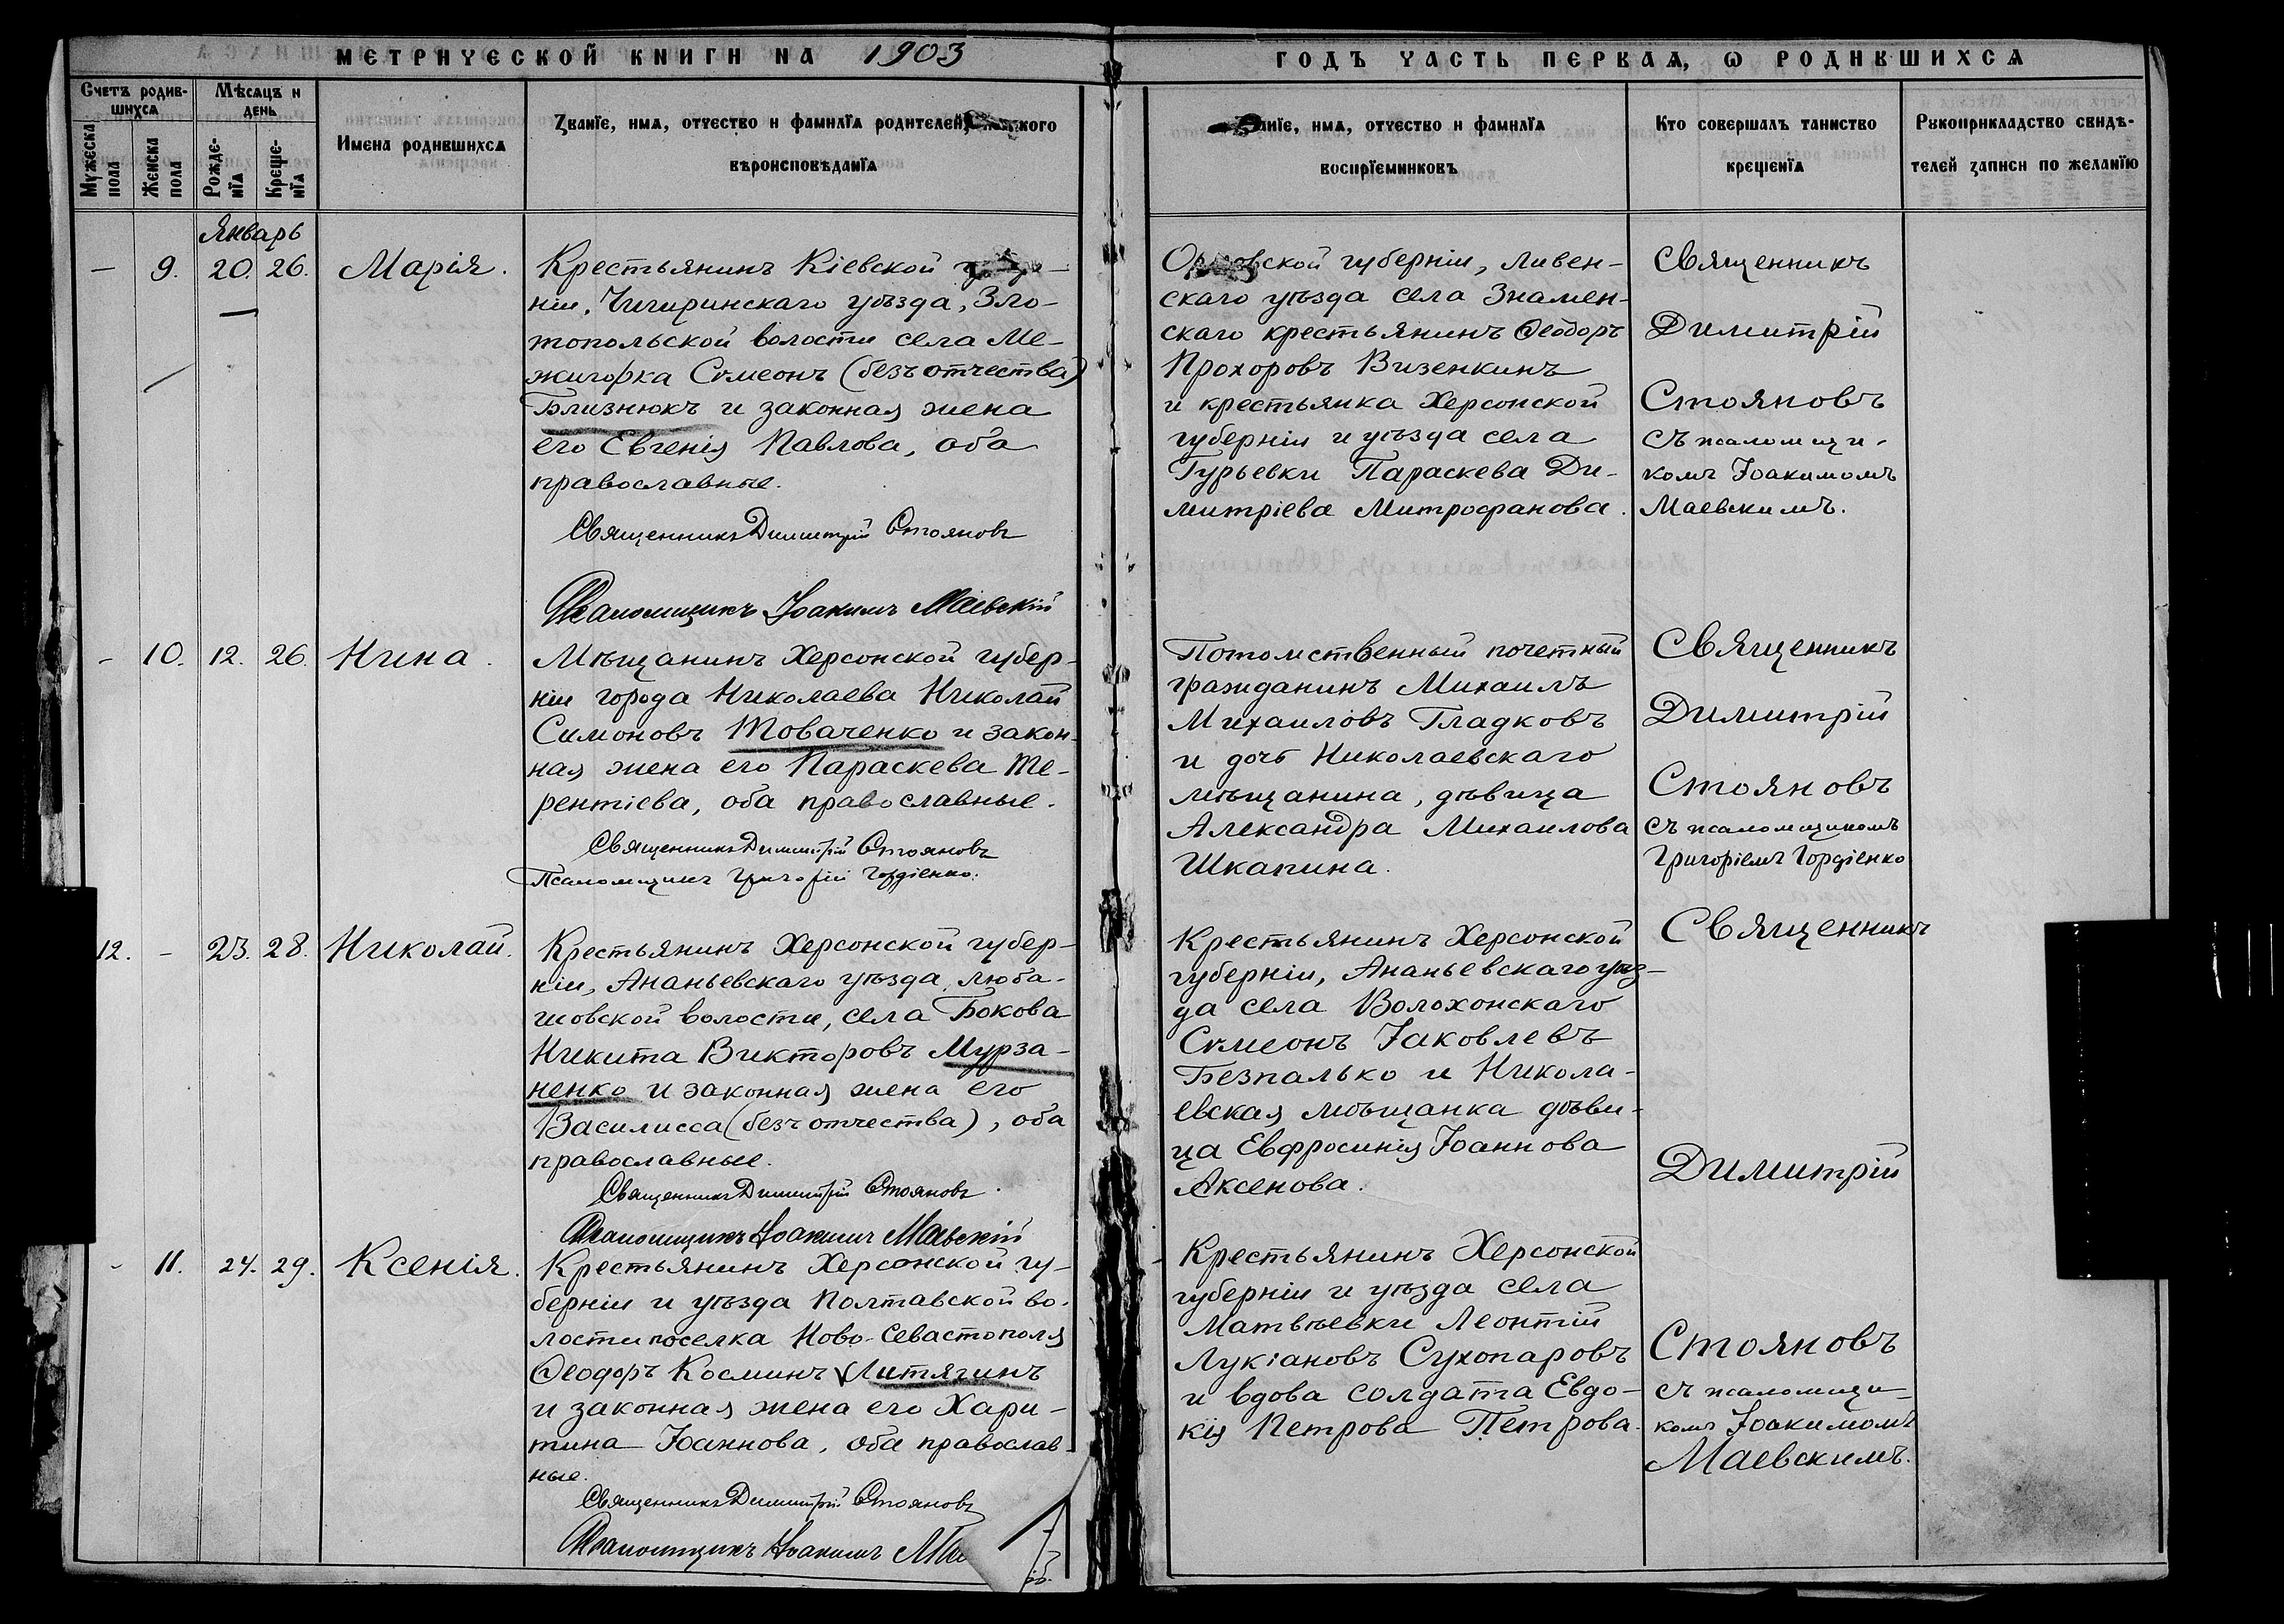 МЕТРИЧЕСКОЙ КНИГИ НА 1903
ГОДЪ ЧАСТЬ ПЕРВАѦ, Ѡ РОДИВШИХСѦ
Счетъ родив-
шихсѧ
Мѣсѧцъ и
день
Мужеска
пола
Женска
пола
Рожде-
нїѧ
Креще-
нїѧ
Имена родившихсѧ
Званїе, имѧ, отчество и фамилїѧ родителей,
кого
вѣроисповѣданїѧ
имѧ, отчество и фамилїѧ
воспрїемниковъ
Кто совершалъ таинство
крещенїѧ
Рукоприкладство свидѣ-
телей записи по желанїю
Январь
— 9. 20. 26. Марія.
Крестьянинъ Кіевской
ніи, Чигиринскаго уѣзда, Зло-
топольской волости села Ме-
жигорка Сѵмеонъ (безъ отчества)
Близнюкъ и законная жена
его Евгенія Павлова, оба
православные.
Священникъ Димитрій Стояновъ
Псаломщикъ Іоакимъ Маевскій
Орловской губерніи, Ливен-
скаго уѣзда села Знамен-
скаго крестьянинъ Ѳеодоръ
Прохоровъ Визенкинъ
и крестьянка Херсонской
губерніи и уѣзда села
Гурьевки Параскева Ди-
митріева Митрофанова.
Священникъ
Димитрій
Стояновъ
съ псаломщи-
комъ Іоакимомъ
Маевскимъ.
- 10. 12. 26. Нина.
Мѣщанинъ Херсонской губер-
ніи города Николаева Николай
Симоновъ Товаченко и закон-
ная жена его Параскева Те-
рентіева, оба православные.
Священникъ Димитрій Стояновъ
Псаломщикъ Григорій Гордіенко.
Потомственный почетный
гражданинъ Михаилъ
Михаиловъ Гладковъ
и дочь Николаевскаго
мѣщанина, дѣвица
Александра Михаилова
Шкапина.
Священникъ
Димитрій
Стояновъ
съ псаломщикомъ
Григоріемъ Гордіенко
12. - 23. 28. Николай.
Крестьянинъ Херсонской губер-
ніи, Ананьевскаго уѣзда, Люба-
шовской волости, села Бокова
Никита Викторовъ Мурза-
ненко и законная жена его
Василисса (безъ отчества), оба
православные.
Священникъ Димитрій Стояновъ
Псаломщикъ Іоакимъ Маевскій
Крестьянинъ Херсонской
губерніи, Ананьевскаго уѣз-
да села Волохонскаго
Сѵмеонъ Іаковлевъ
Безпалько и Никола-
евская мѣщанка дѣви-
ца Евфросинія Іоаннова
Аксенова.
Священникъ
Димитрій
- 11. 24. 29. Ксенія.
Крестьянинъ Херсонской гу-
берніи и уѣзда Полтавской во-
лости поселка Ново-Севастополя
Ѳеодоръ Косминъ Литягинъ
и законная жена его Хари-
тина Іоаннова, оба православ-
ные.
Священникъ Димитрій Стояновъ
Псаломщикъ Іоакимъ
Крестьянинъ Херсонской
губерніи и уѣзда села
Матвѣевки Леонтій
Лукіановъ Сухопаровъ
и вдова солдата Евдо-
кія Петрова Петрова.
Стояновъ
съ псаломщи-
комъ Іоакимомъ
Маевскимъ.